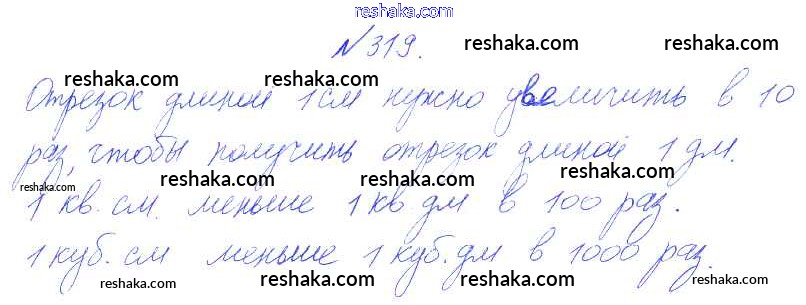 reshaka.com
№319.
reshaka.com reshaka.com
reshaka.com reshaka.com reshaka.com
Отрезок длиной 1 см нужно увеличить в 10
reshaka.com reshaka.com
раз, чтобы получить отрезок длиной 1 дм.
reshaka.com reshaka.com reshaka.com
1 кв. см. меньше 1 кв дм в 100 раз.
reshaka.com reshaka.com
1 куб. см меньше 1 куб. дм в 1000 раз.
reshaka.com reshaka.com reshaka.com